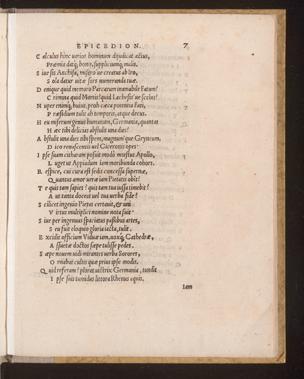 EPICEDION. 7
Calculus hinc varios hominum dijudicat actus,
Præmia datq; bonis, supplicium q; malis.
Sive sis Anchisa, misero ve creatus ab Iro,
Sola datur vitæ sors numeranda tuæ.
Denique quid memoro Parcarum immobile Fatum?
Crimina quid Mortis? quid Lachesis ve scelus?
Nuper enim q; huius, proh cæca potentia Fati,
Præsidium tulit ab tempore, atque decus.
Heu miserum genus humanum, Germania, quantas
Hæc tibi delicias abstulit una dies?
Abstulit una dies tibi spem, magnumque Gryneum,
Dico renascentis vel Ciceronis opes:
Ipse suam citharam posuit modò mœstus Apollo,
Luget ut Appiadum iam moribunda cohors.
Respice, cui cura est sedes concessa supernæ,
Quantus amor veræ iam Pietatis obit!
Te quis tam sapiet? quis tam tua iussa timebit?
Aut tanta docuit vel tua verba fide?
Scilicet ingenio Pietas certavit, & uni
Virtus multiplici nomine nota fuit.
Sive per ingenuas spaciatus passibus artes,
Seu fuit eloquio gloria iacta, tulit.
Excidit officium Viduæ iam, uoxq; Cathedræ,
Assuetæ doctos sæpe tulisse pedes.
Sæpe novem uidi mirantes verba Sorores,
Ornabat cultis quæ prius ipse modis.
Quid referam? plorat uictrix Germania, tundit
Ipse suis tumidus littora Rhenus aquis.
Iam